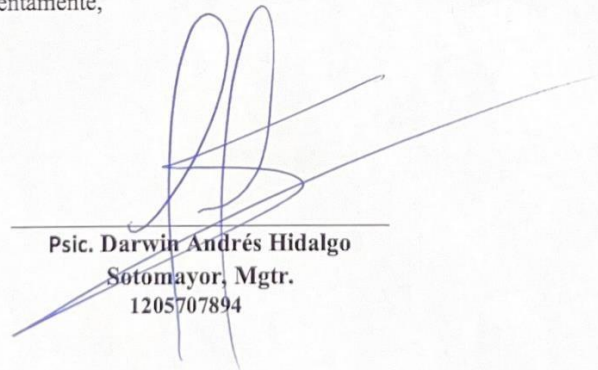 entamente,
Psic. Darwin Andrés Hidalgo
Sotomayor, Mgtr.
1205707894